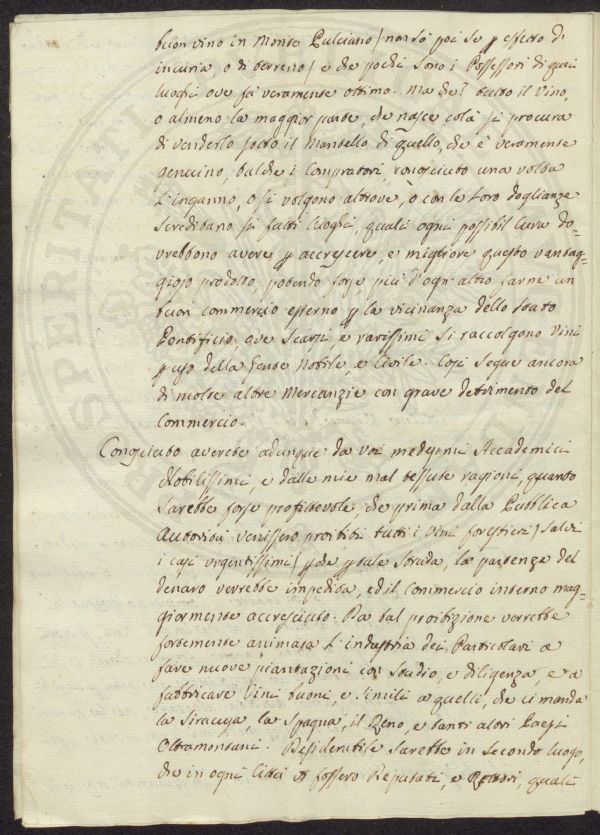 buon vino in Monte Pulciano / non sò poi se p effetto di
incuria, o di terreno / e che pochi sono i Possessori di quei
luoghi ove fa veramente ottimo. Ma che? tutto il Vino,
o almeno la maggior parte, che nasce colà si procura
di venderlo sotto il Mantello di quello, che è veramente
genuino, talche i Compratori, conosciuto una volta
l'inganno, o si volgono altrove, o con le loro doglianze
screditano sì fatti luoghi, quali ogni possibil cura do=
vrebbono avere p accrescere, e migliore questo vantag=
gioso prodotto, potendo forse più d'ogn'altro farne un
buon commercio esterno p la vicinanza dello stato
Pontificio, ove scarsi, e rarissimi si raccolgono Vini
p uso della Gente Nobile, e Civile. Così segue ancora
di molte altre Mercanzie con grave detrimento del
Commercio.
Conosciuto averete adunque da voi medesimi Accademici
Nobilissimi, e dalle mie mal tessute ragioni, quanto
sarebbe forse profittevole, che prima dalla Pubblica
Autorità venissero proibiti tutti i Vini forestieri / salvi
i casi urgentissimi / pche p tale strada, la partenza del
denaro verrebbe impedita, ed il Commercio interno mag=
giormente accresciuto. Da tal proibizione verrebbe
fortemente animata l'industria dei Particolari a
fare nuove piantazioni con studio, e diligenza, e a
fabbricare Vini buoni, e simili a quelli, che ci manda
la Siracusa, la Spagna, il Reno, e tanti altri Paesi
Oltramontani. Desiderabile sarebbe in secondo luogo,
che in ogni Città vi fossero Deputati, e Rettori, quali
SPERITATI